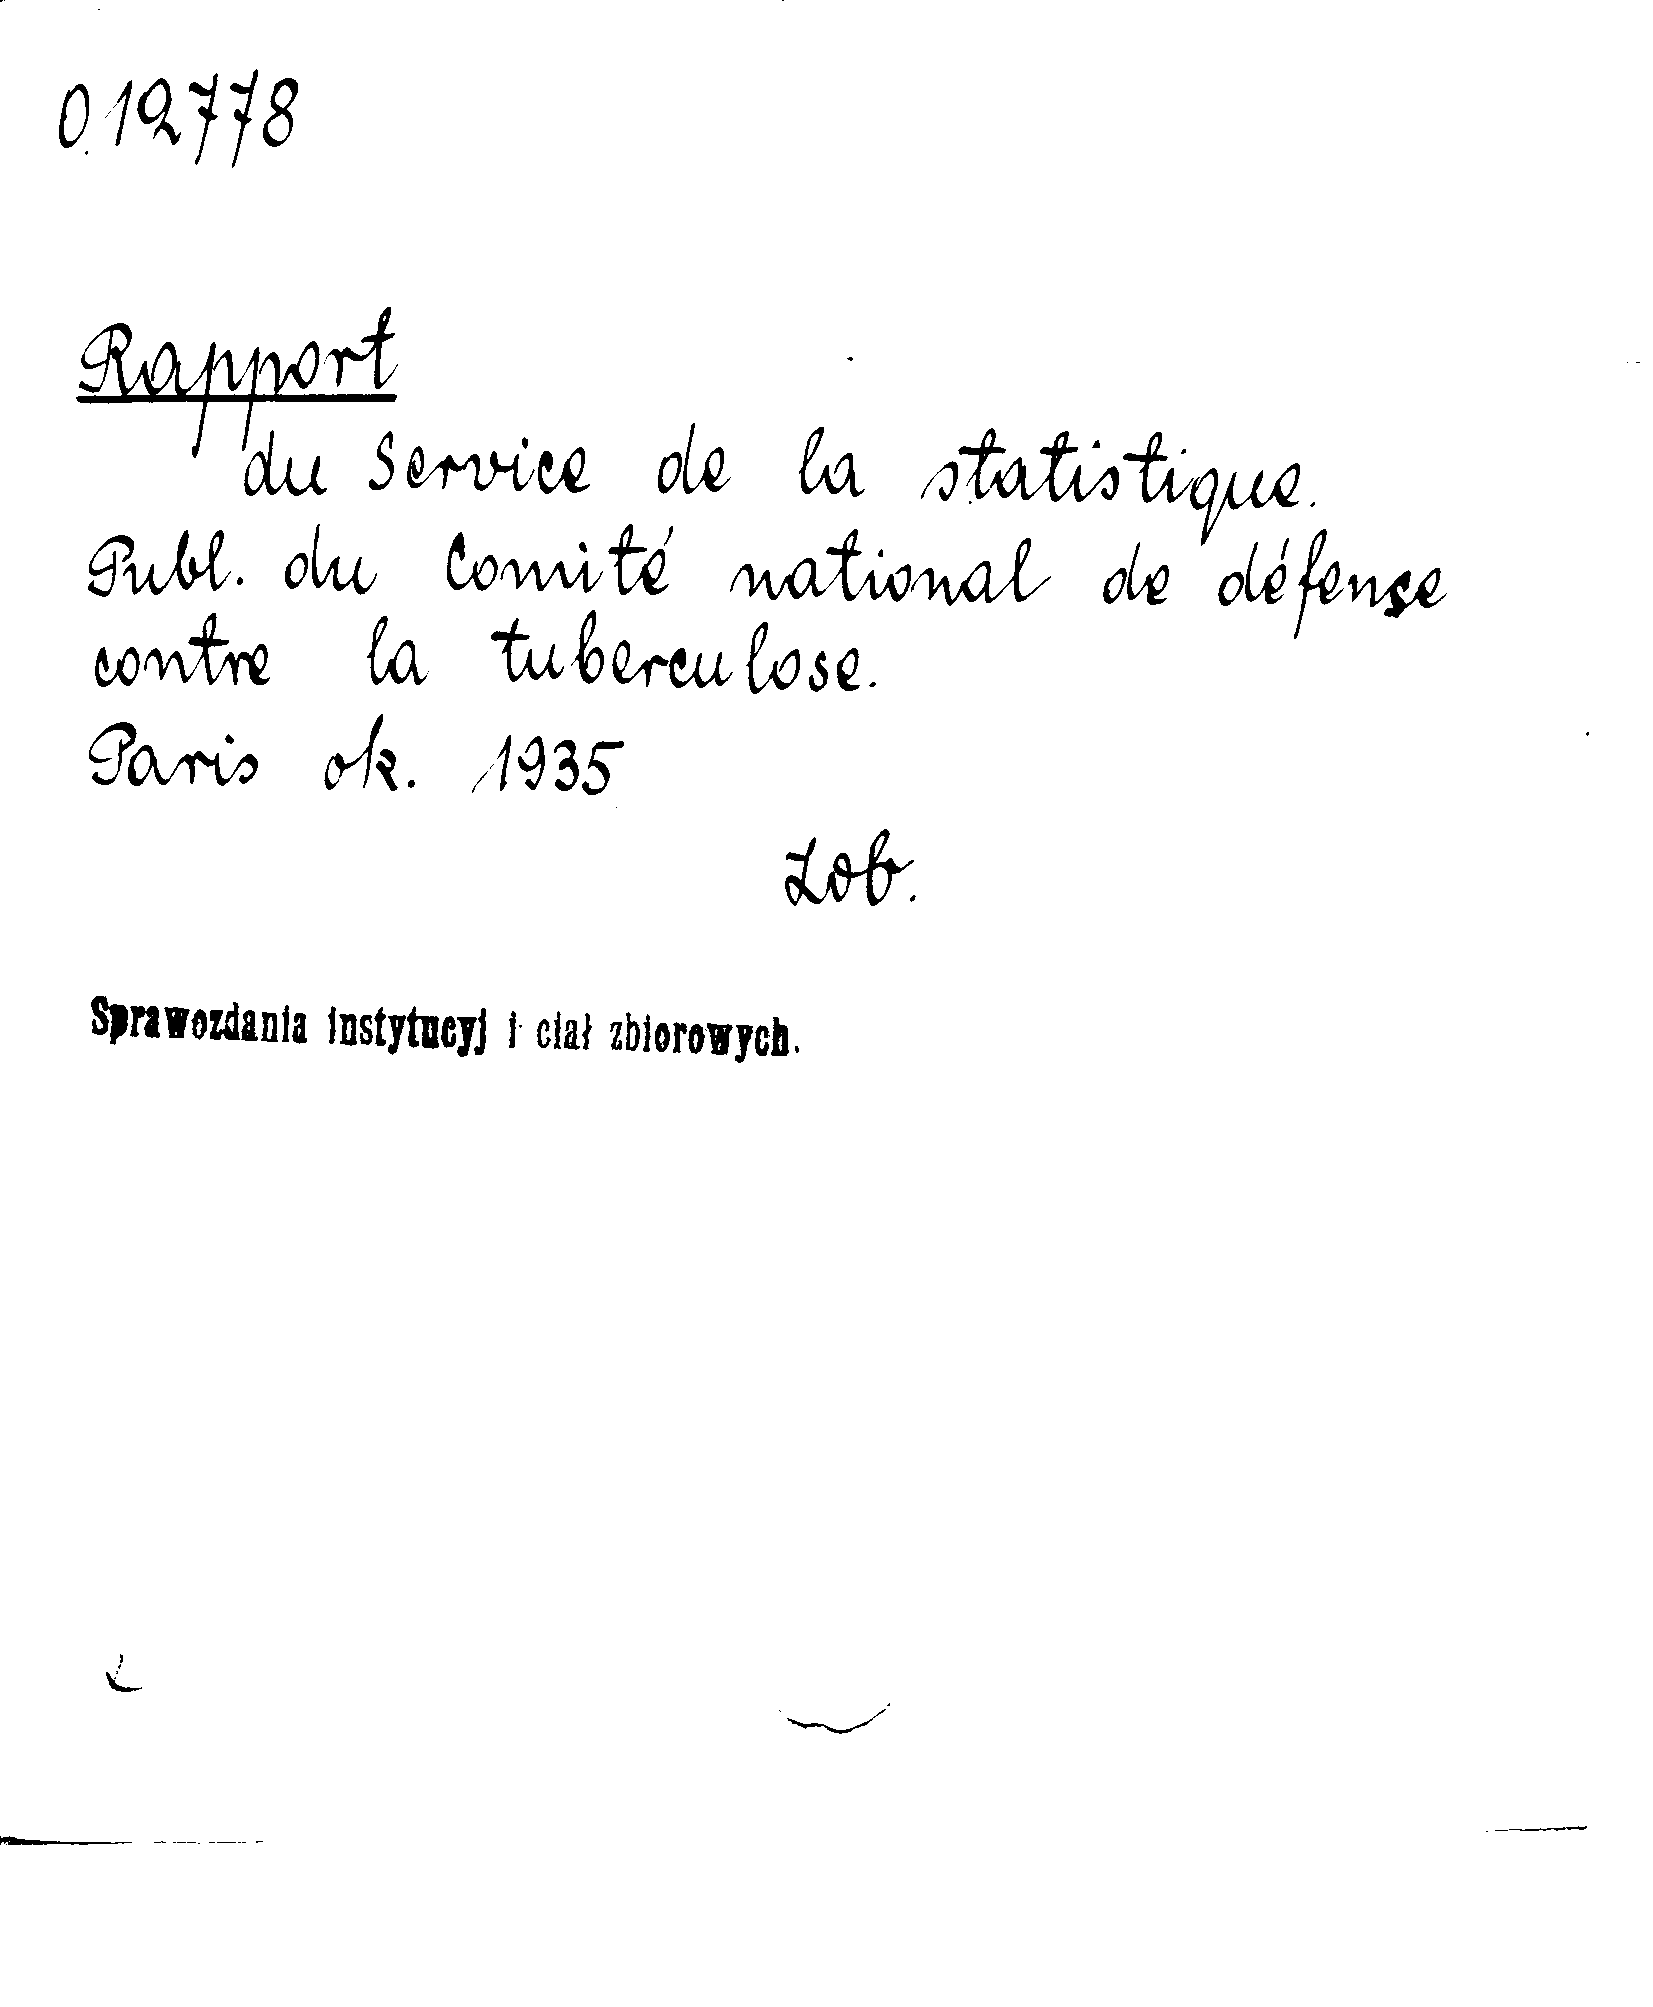 012778
Rapport
du Service de la statistique.
Publ. du Comité national de défense
contre la tuberculose.
Paris ok. 1935
Zob.
Sprawozdania instytucyj i ciał zbiorowych.